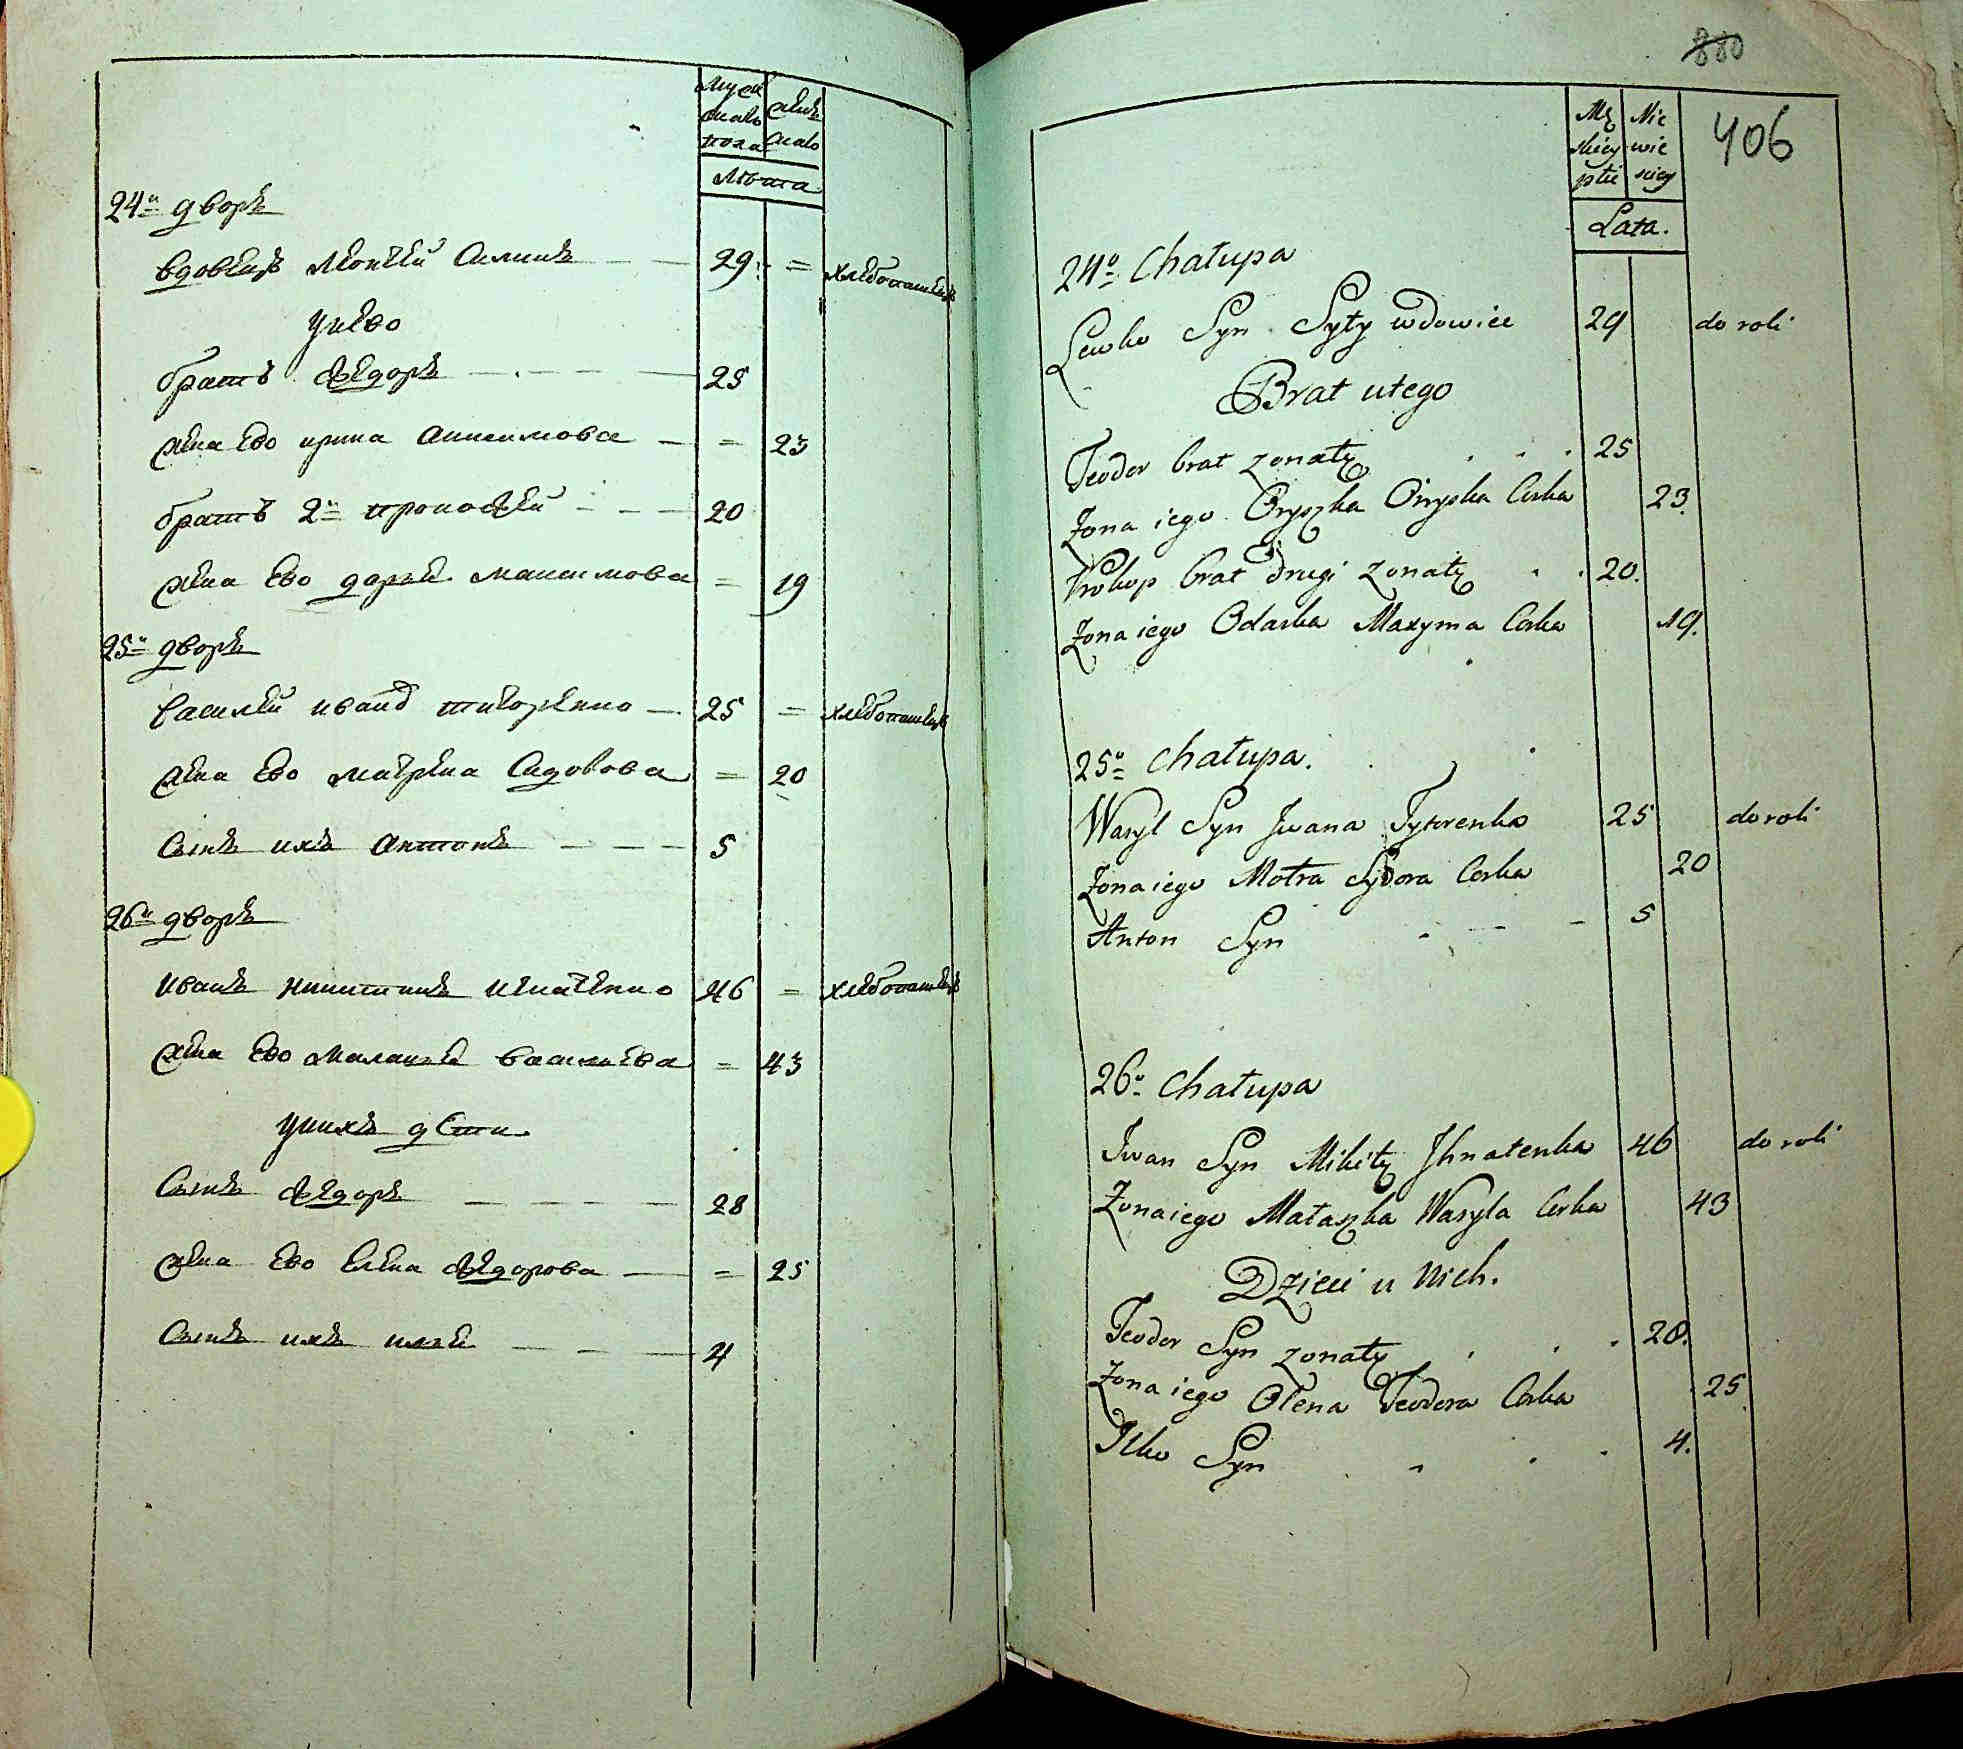 Муск
каво
пола
женс
каво
Лѣта
24й дворъ
вдовецъ Леонтей Силинъ 29 = хлебопашецъ
У нево
братъ Федоръ 25
жена ево ирина Анисимова = 23
братъ 2й прокофей 20
жена ево дарья максимова = 19
25й дворъ
василей иванов титоренко 25 = хлебопашецъ
жена ево матрена Сидорова = 20
Сынъ ихъ Антонъ 5
26й дворъ
иванъ никитинъ игнатенко 46 = хлебопашецъ
жена ево маланья васильева = 43
У нихъ дети
Сынъ Федоръ 28
жена ево елена Федорова = 25
Сынъ ихъ илья 4
880
406
Mę
skiey
płci
Nie
wie
sciey
Lata.
24o Chałupa
Lewko Syn Syły wdowiec 29 do roli
Brat u tego
Teodor brat zonaty 25
Zona iego Oryszka Corka 23.
Prokop brat drugi zonaty 20.
Zona iego Odarka Maxyma Corka 19.
25o Chałupa.
Wasyl Syn Jwana Tytorenka 25 do roli
Zona iego Motra Sydora Corka 20
Anton Syn 5
26o Chałupa
Jwan Syn Mikity Jhnatenka 46 do roli
Zona iego Małaszka Wasyla Corka 43
Dzieci u Nich.
Teodor Syn zonaty 28.
Zona iego Ołena Teodora Corka 25
Ilko Syn 4.